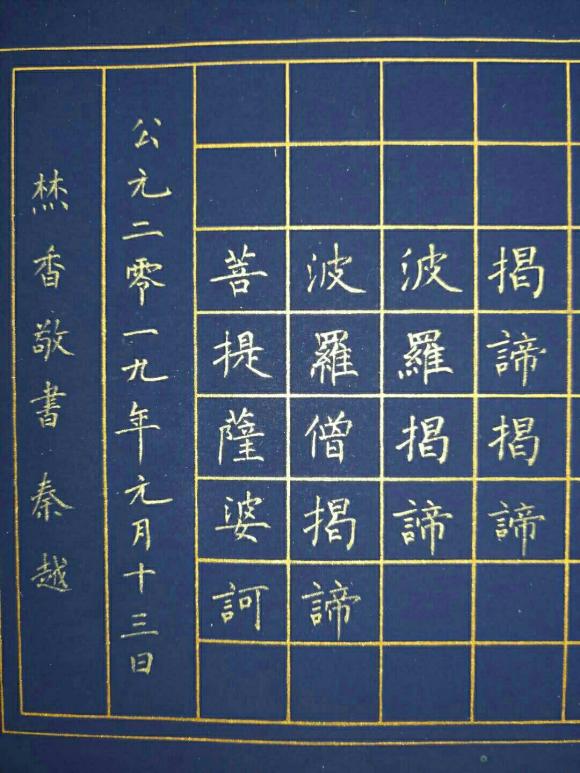 揭諦揭諦
波羅揭諦
波羅僧揭諦
菩提薩婆訶
公元二零一九年元月十三日
焚香敬書秦越